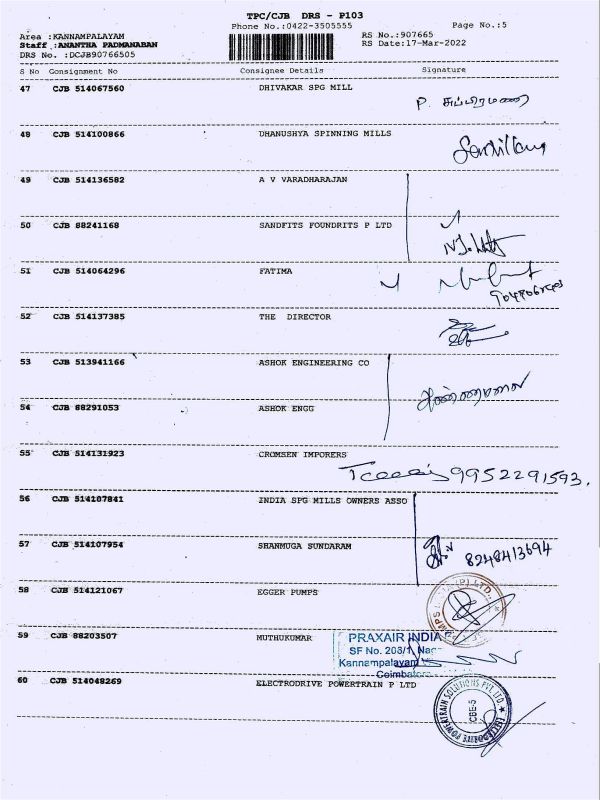 TPC/CJB DRS - P103
Phone No.:0422-3505555
Page No.:5
Area :KANNAMPALAYAM
RS No.:907665
Staff :ANANTHA PADMANABAN
RS Date:17-Mar-2022
DRS No. :DCJB90766505
S No Consignment No Consignee Details Signature
47 CJB 514067560 DHIVAKAR SPG MILL
P. சுப்பிரமணி
48 CJB 514100866 DHANUSHYA SPINNING MILLS
49 CJB 514136582 A V VARADHARAJAN
50 CJB 88241168 SANDFITS FOUNDRITS P LTD
51 CJB 514064296 FATIMA
52 CJB 514137385 THE DIRECTOR
53 CJB 513941166 ASHOK ENGINEERING CO
54 CJB 88291053 ASHOK ENGG
55 CJB 514131923 CROMSEN IMPORERS
9952291593.
56 CJB 514107841 INDIA SPG MILLS OWNERS ASSO
57 CJB 514107954 SHANMUGA SUNDARAM
8248413694
58 CJB 514121067 EGGER PUMPS
(P) LTD.
59 CJB 88203507 MUTHUKUMAR
PRAXAIR INDIA
SF No. 208/1,
Kannampalayam
Coimbatore
60 CJB 514048269 ELECTRODRIVE POWERTRAIN P LTD
ELECTRODRIVE POWERTRAIN SOLUTIONS PVT. LTD.
CBE-5